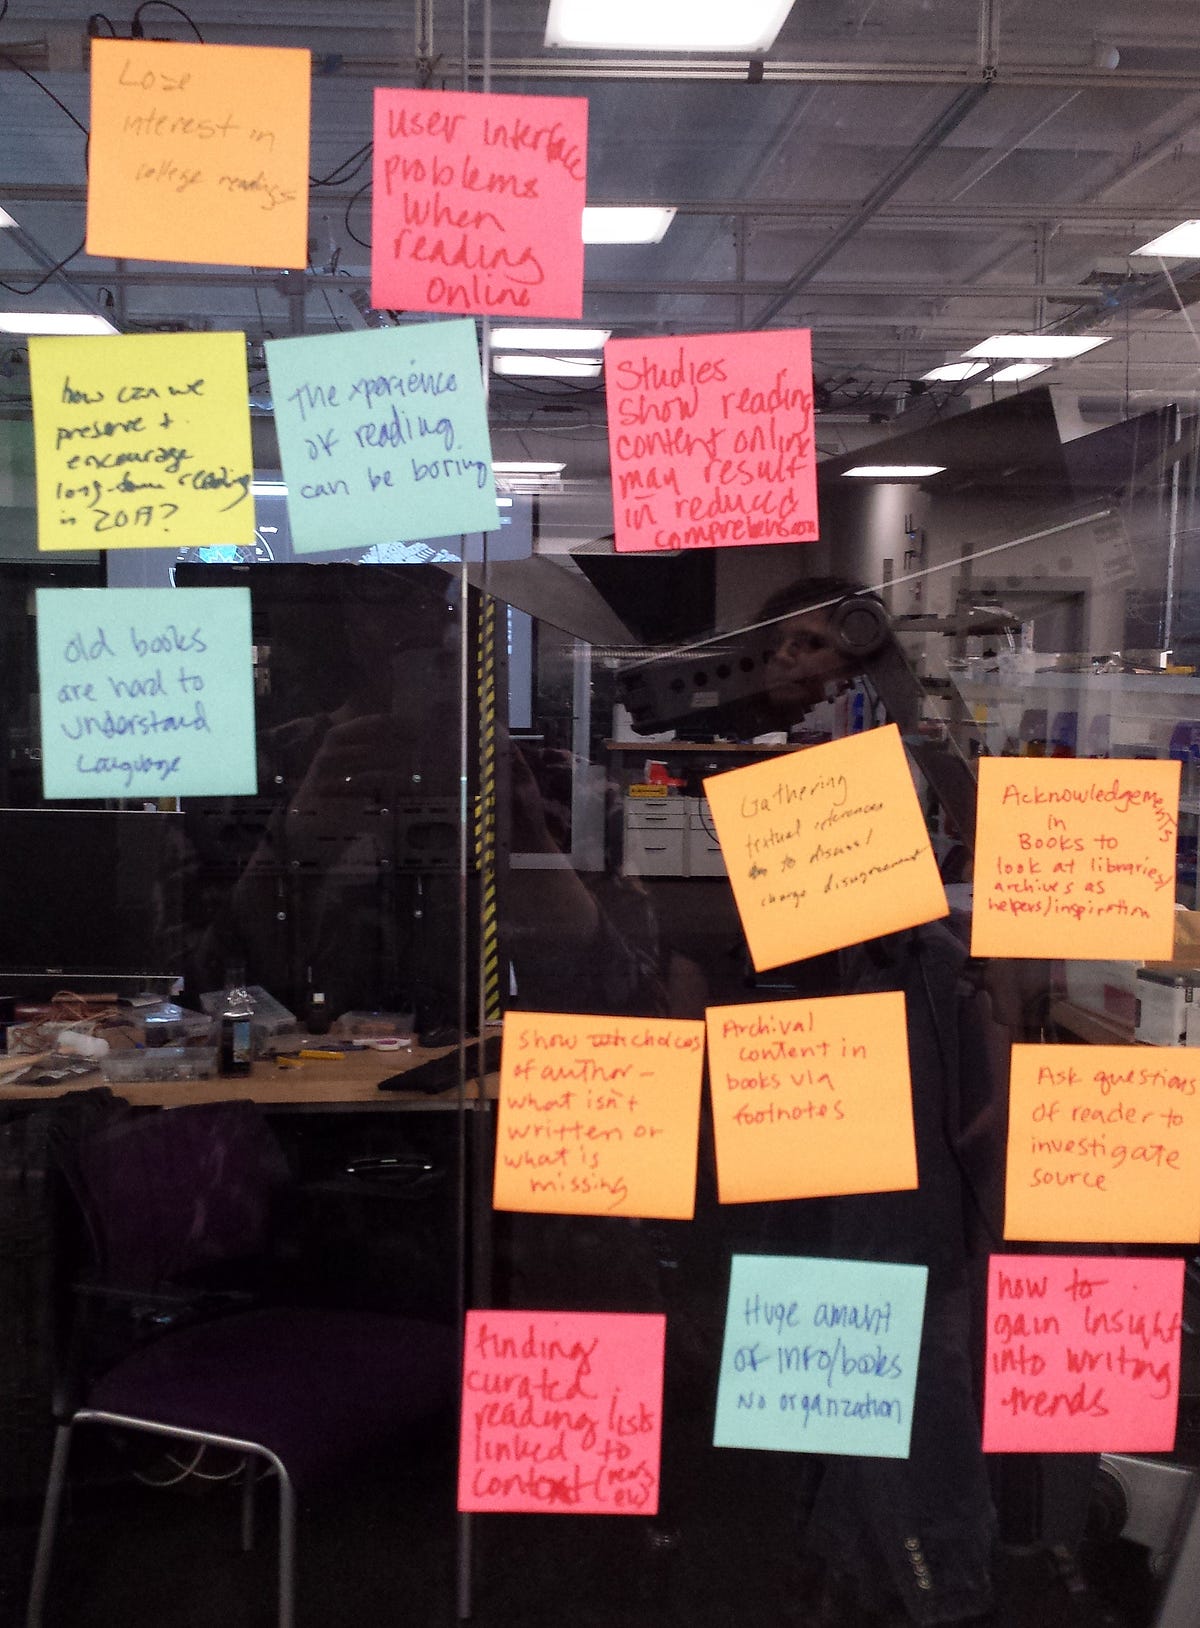 Lose
interest in
college readings
User interface
problems
when
reading
online
how can we
preserve +
encourage
long-term reading
in 2019?
The xperience
of reading
can be boring
Studies
show reading
content online
may result
in reduced
comprehension
old books
are hard to
understand
Language
Gathering
textual references
to discuss/
change disagreement
Acknowledgements
in
Books to
look at libraries/
archives as
helpers/inspiration
Show choices
of author –
what isn't
written or
what is
missing
Archival
content in
books via
footnotes
Ask questions
of reader to
investigate
source
finding
curated
reading lists
linked to
context (
Huge amount
of info/books
No organization
how to
gain insight
into writing
trends